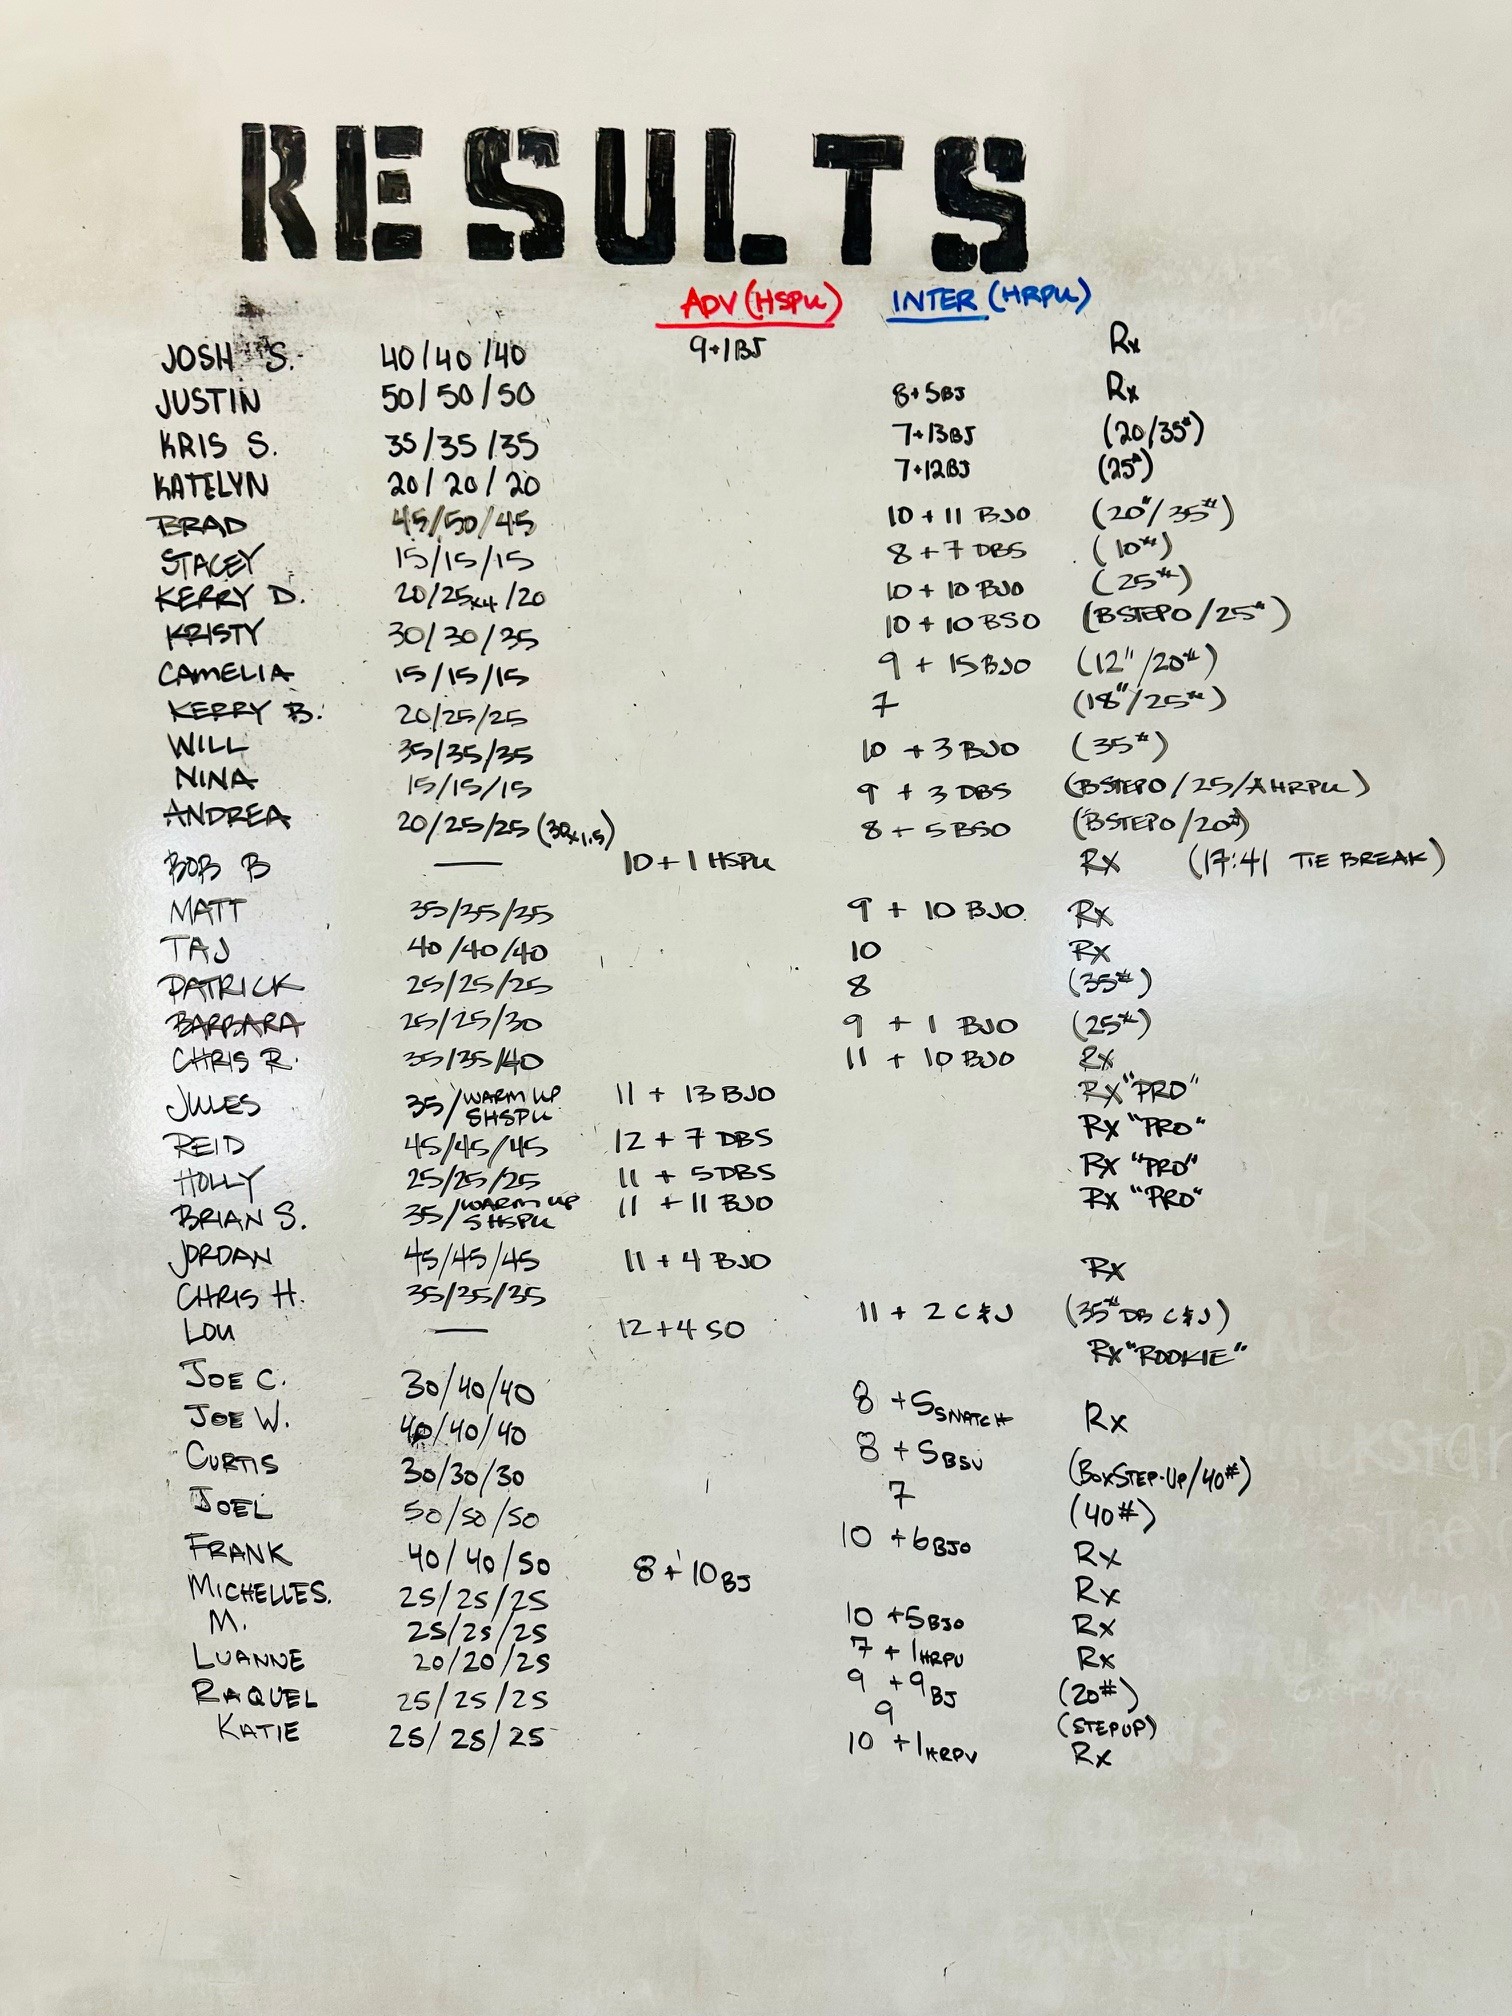 RESULTS
ADV (HSPU) INTER (HRPU)
JOSH S. 40/40/40 9+1BJ Rx
JUSTIN 50/50/50 8+5BJ Rx
KRIS S. 35/35/35 7+13BJ (20/35#)
KATELYN 20/20/20 7+12BJ (25#)
BRAD 45/50/45 10+11 BJO (20"/35#)
STACEY 15/15/15 8+7 DBS (10#)
KERRY D. 20/25x4/20 10+10 BJO (25#)
KRISTY 30/30/35 10+10 BSO (BSTEPO/25#)
CAMELIA 15/15/15 9+15BJO (12"/20#)
KERRY B. 20/25/25 7 (18"/25#)
WILL 35/35/35 10+3BJO (35#)
NINA 15/15/15 9+3 DBS (BSTEPO/25/AHRPU)
ANDREA 20/25/25 (30x1.5) 8+5BSO (BSTEPO/20#)
BOB B — 10+1 HSPU RX (17:41 TIE BREAK)
MATT 35/35/35 9+10 BJO. RX
TAJ 40/40/40 10 RX
PATRICK 25/25/25 8 (35#)
BARBARA 25/25/30 9+1 BJO (25#)
CHRIS R. 35/35/40 11+10 BJO RX
JULES 35/WARM UP SHSPU 11+13 BJO RX "PRO"
REID 45/45/45 12+7 DBS RX "PRO"
HOLLY 25/25/25 11+5DBS RX "PRO"
BRIAN S. 35/WARM UP SHSPU 11+11 BJO RX "PRO"
JORDAN 45/45/45 11+4 BJO RX
CHRIS H. 35/35/35 11+2 C&J (35# DB C&J)
LOU — 12+4 SO RX "ROOKIE"
JOE C. 30/40/40 8+5 SNATCH Rx
JOE W. 40/40/40 8+5 BSU (BOXSTEP-UP/40#)
CURTIS 30/30/30 7 (40#)
JOEL 50/50/50 10+6 BJO Rx
FRANK 40/40/50 8+10 BJ Rx
MICHELLE S. 25/25/25 10+5 BJO Rx
M. 25/25/25 7+1 HRPU Rx
LUANNE 20/20/25 9+9 BJ (20#)
RAQUEL 25/25/25 9 (STEPUP)
KATIE 25/25/25 10+1 HRPU Rx